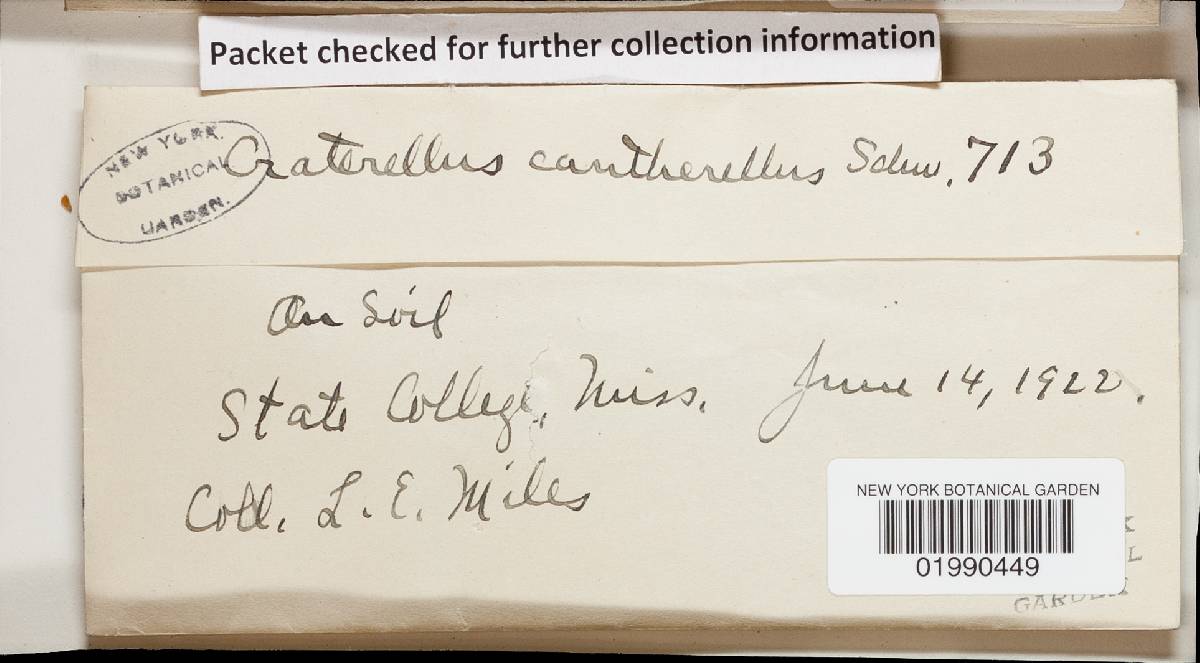 Packet checked for further collection information
NEW YORK
BOTANICAL
GARDEN.
Craterellus cantherellus Schw. 713
On Soil
State College, Miss. June 14, 1922.
Coll. L. E. Miles
NEW YORK BOTANICAL GARDEN
01990449
K
L
GARDEN